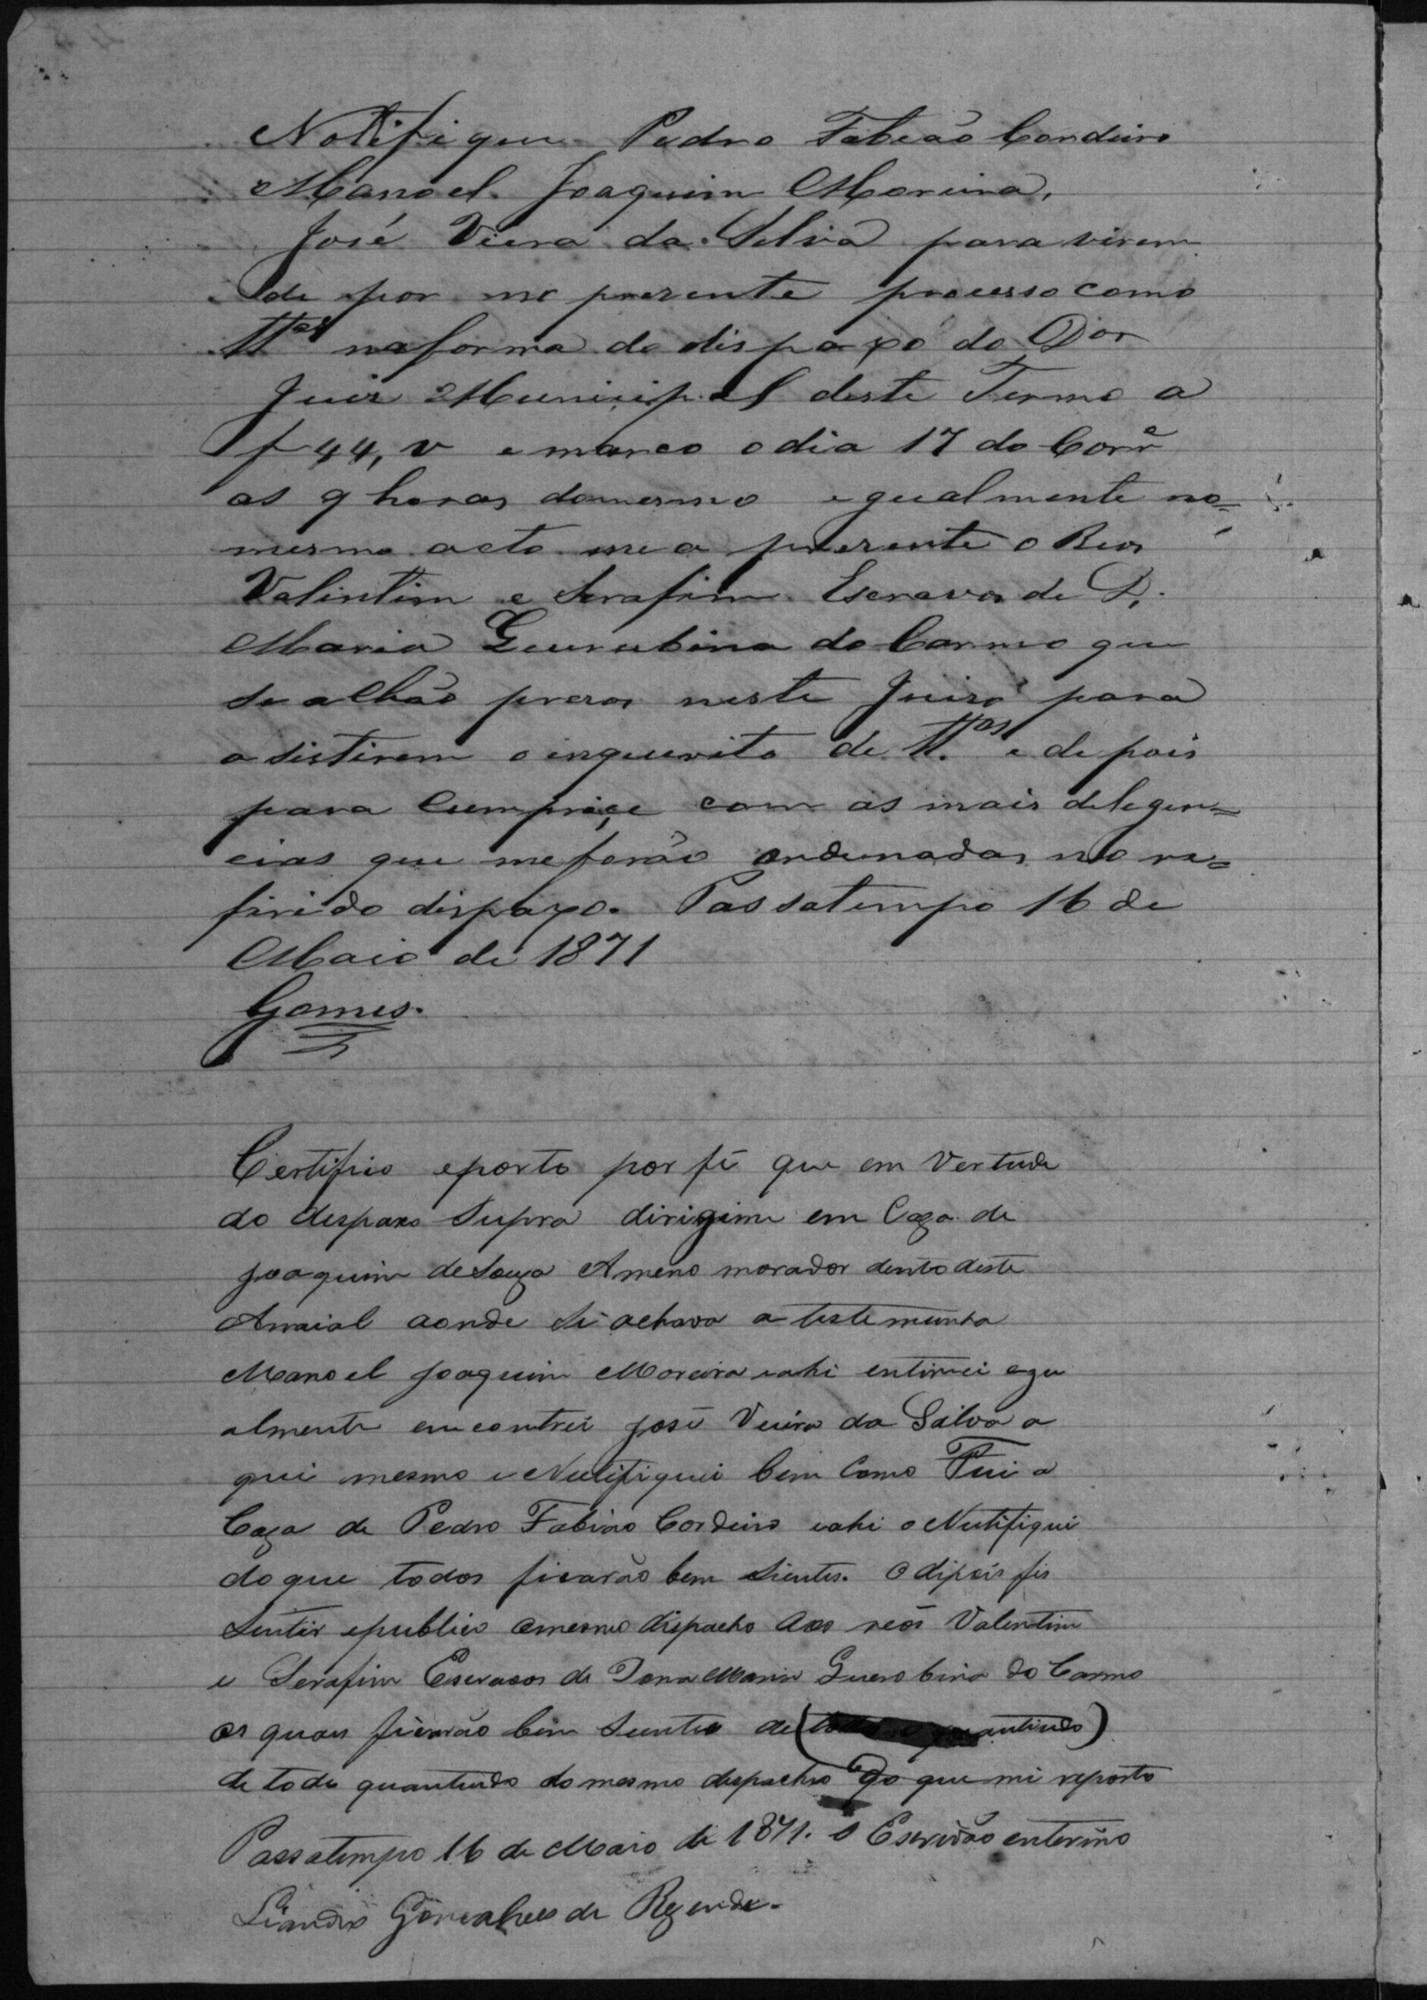 Notifique Pedro Fabião Cordeiro
Manoel Joaquim Moreira,
José Viera da Silva para virem
de por no prezente processo como
ttas na forma do dispaxo do Dor
Juis Municipal deste Termo a
f 44, v e marco o dia 17 do Corre
as 9 horas do mesmo egualmente no
mesmo acto seja prezente o Reos
Valintim e Serafim Escravos de D.
Maria Guerubina do Carmo que
se alhão prezos neste Juiso para
asistirem o inquerito de ttas e depois
para Cumprice com as mais deligen=
cias que me forão ordenadas no re=
firido dispaxo. Passatempo 16 de
Maio de 1871
Gomes.
Certifico eporto por fé que em Vertude
do despaxo Supra dirigime em Caza de
Joaquim de Souza Ameno morador dento deste
Arraial aonde si achava a testemunha
Manoel Joaquim Moreira eahi entimei egu
almente encontrei José Vieira da Silva a
qui mesmo e Nutifiquei bem Como Fui a
Caza de Pedro Fabião Cordeiro eahi o Nutifiqui
doque todos ficarão bem Sientes. O dipois fis
Sentir epublico omesmo dispacho aos reos Valentim
e Serafim Escravos de Dona Maria Guerobina do Carmo
os quais ficarão bem Sientes de ( quantindo)
de todo quantindo do mesmo despacho do que mi reporto
Passatempo 16 de Maio de 1871. O Escrivão enterino
Liandro Gonçalves de Rezende.